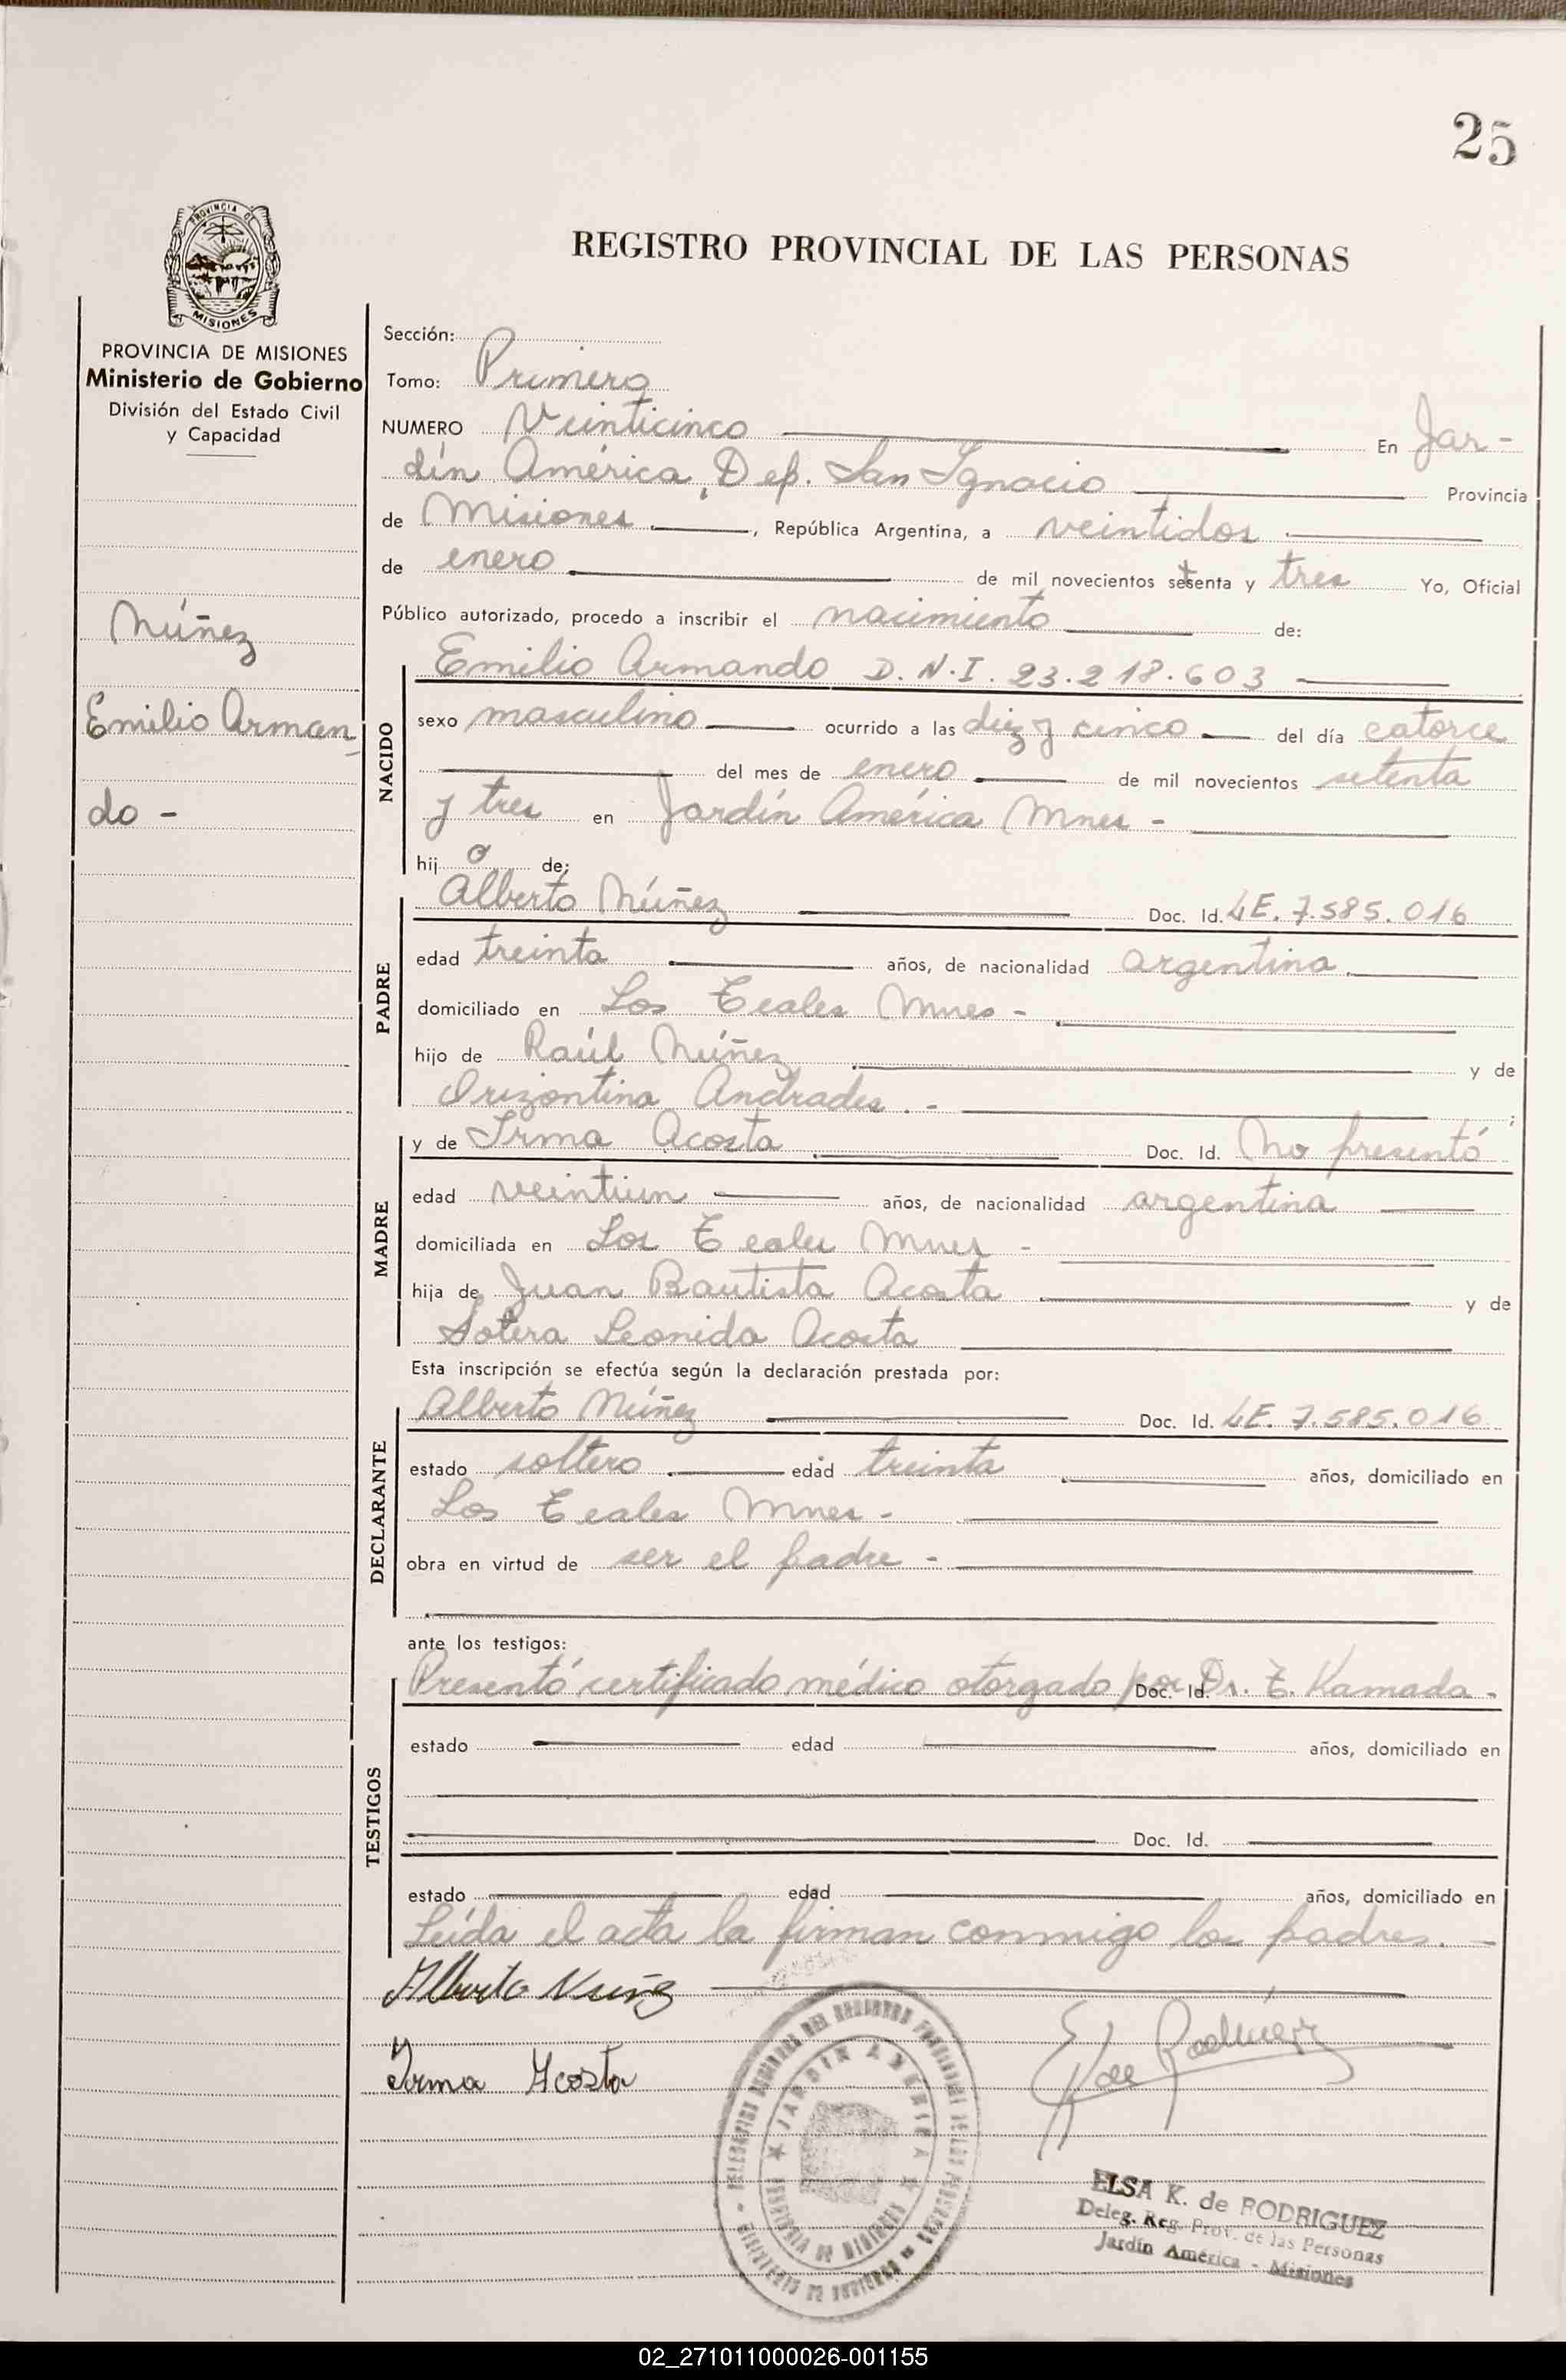 25
PROVINCIA DE
MISIONES
PROVINCIA DE MISIONES
Ministerio de Gobierno
División del Estado Civil
y Capacidad
Núñez
Emilio Arman
do -
REGISTRO PROVINCIAL DE LAS PERSONAS
Sección:
Tomo: Primero
NUMERO Veinticinco En Jar-
dín América, Dep. San Ignacio Provincia
de Misiones, República Argentina, a veintidos
de enero de mil novecientos setenta y tres Yo, Oficial
Público autorizado, procedo a inscribir el nacimiento de:
NACIDO
Emilio Armando D.N.I. 23.218.603
sexo masculino ocurrido a las diez y cinco del día catorce
del mes de enero de mil novecientos setenta
y tres en Jardín América Mnes -
hij o de:
PADRE
Alberto Núñez Doc. Id. LE. 7.585.016
edad treinta años, de nacionalidad argentina
domiciliado en Los Teales Mnes -
hijo de Raúl Núñez y de
Orizontina Andrades. - ;
MADRE
y de Irma Acosta Doc. Id. No presentó
edad veintiun años, de nacionalidad argentina
domiciliada en Los Teales Mnes -
hija de Juan Bautista Acosta y de
Sotera Leonida Acosta
Esta inscripción se efectúa según la declaración prestada por:
DECLARANTE
Alberto Núñez Doc. Id. LE. 7.585.016
estado soltero edad treinta años, domiciliado en
Los Teales Mnes -
obra en virtud de ser el padre -
ante los testigos:
TESTIGOS
Presentó certificado médico otorgado por Doc. Id. Dr. T. Kamada -
estado edad años, domiciliado en
Doc. Id.
estado edad años, domiciliado en
Leída el acta la firman conmigo los padres. -
Alberto Nuñez
Irma Acosta
E K de Rodríguez
JARDIN AMERICA
ELSA K. de RODRIGUEZ
Deleg. Reg. Prov. de las Personas
Jardín América - Misiones
02_271011000026-001155